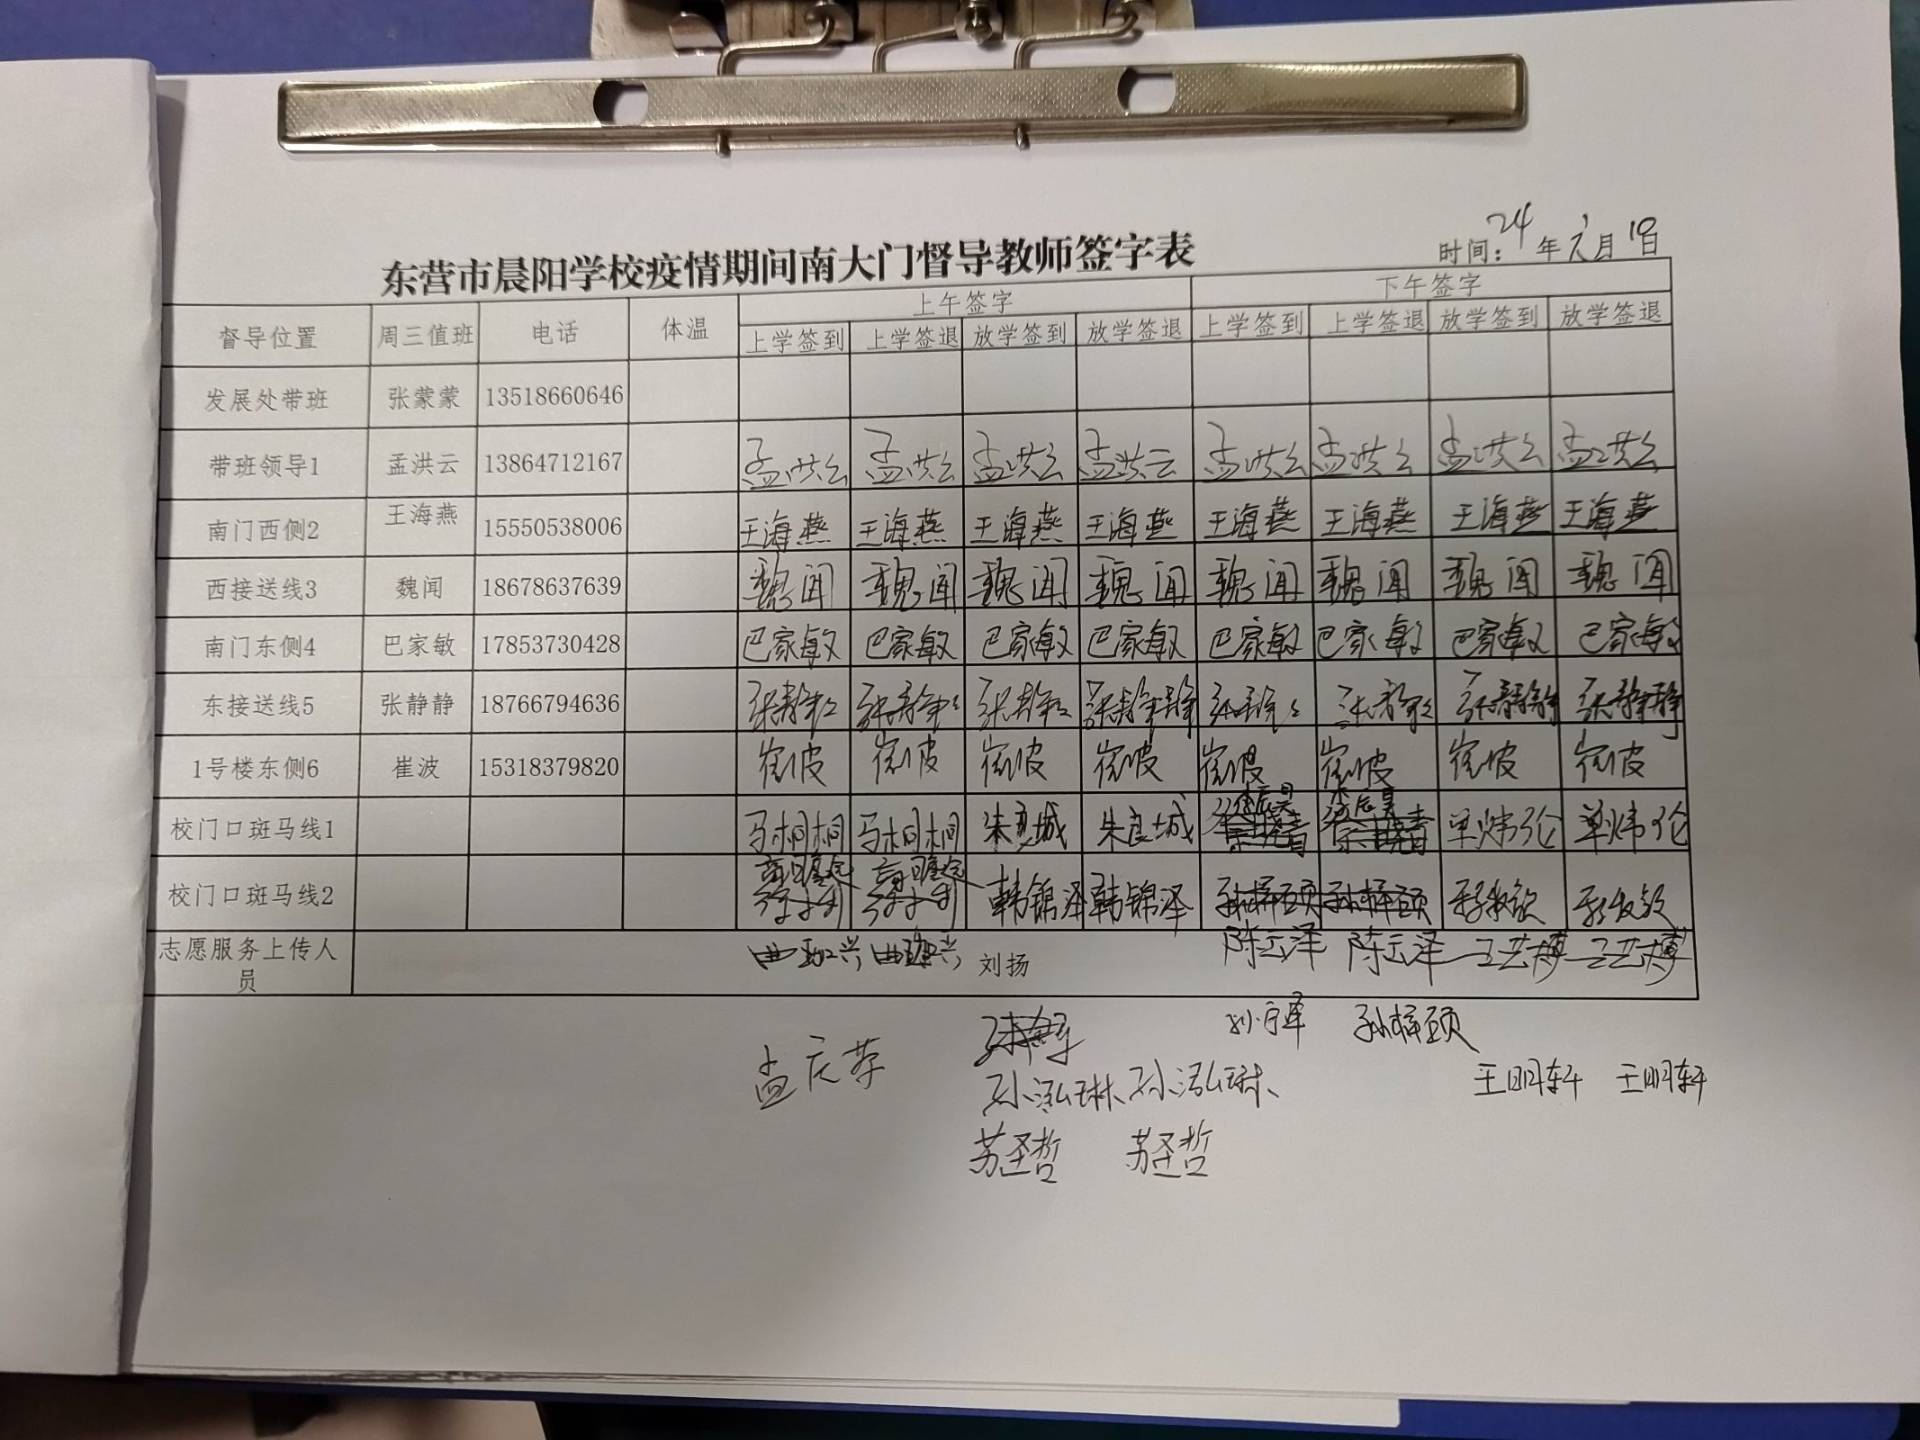 时间：24年 月19日
东营市晨阳学校疫情期间南大门督导教师签字表
督导位置 周三值班 电话 体温 上午签字 下午签字
上学签到 上学签退 放学签到 放学签退 上学签到 上学签退 放学签到 放学签退
发展处带班 张蒙蒙 13518660646
带班领导1 孟洪云 13864712167 孟洪云 孟洪云 孟洪云 孟洪云 孟洪云 孟洪云 孟洪云 孟洪云
南门西侧2 王海燕 15550538006 王海燕 王海燕 王海燕 王海燕 王海燕 王海燕 王海燕 王海燕
西接送线3 魏闻 18678637639 魏闻 魏闻 魏闻 魏闻 魏闻 魏闻 魏闻 魏闻
南门东侧4 巴家敏 17853730428 巴家敏 巴家敏 巴家敏 巴家敏 巴家敏 巴家敏 巴家敏 巴家敏
东接送线5 张静静 18766794636 张静静 张静静 张静静 张静静 张静静 张静静 张静静 张静静
1号楼东侧6 崔波 15318379820 崔波 崔波 崔波 崔波 崔波 崔波 崔波 崔波
校门口斑马线1 马桐桐 马桐桐 朱良城 朱良城 单炜伦 单炜伦
校门口斑马线2 韩锦泽 韩锦泽 孙梓颐 孙梓颐
志愿服务上传人员 刘扬 陈云泽 陈云泽 王艺博 王艺博
孙梓颐
孟庆荣 王明轩 王明轩
孙泓琳 孙泓琳
苏圣哲 苏圣哲